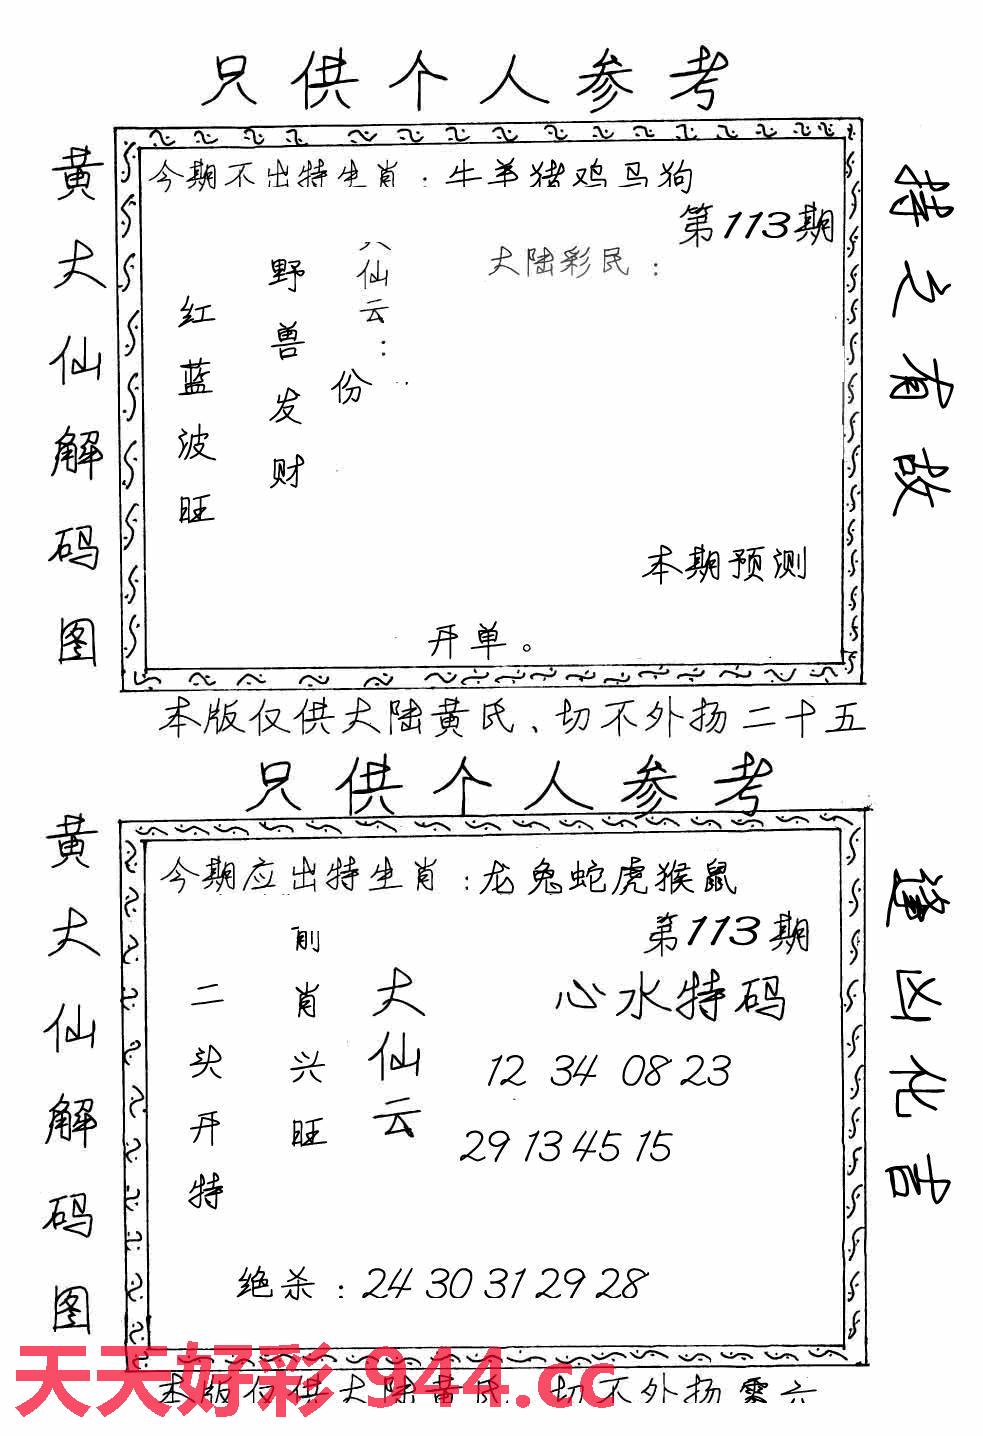 只供个人参考
黄大仙解码图
今期不出特生肖：牛羊猪鸡马狗
第113期
大陆彩民：
仙云：
份
野兽发财
红蓝波旺
本期预测
开单。
持之有故
本版仅供大陆黄氏、切不外扬二十五
只供个人参考
黄大仙解码图
今期应出特生肖：龙兔蛇虎猴鼠
第113期
心水特码
大仙云
前肖兴旺
二头开特
12 34 08 23
29 13 45 15
绝杀：24 30 31 29 28
逢凶化吉
天天好彩 944.cc
本版仅供大陆黄氏、切不外扬零六